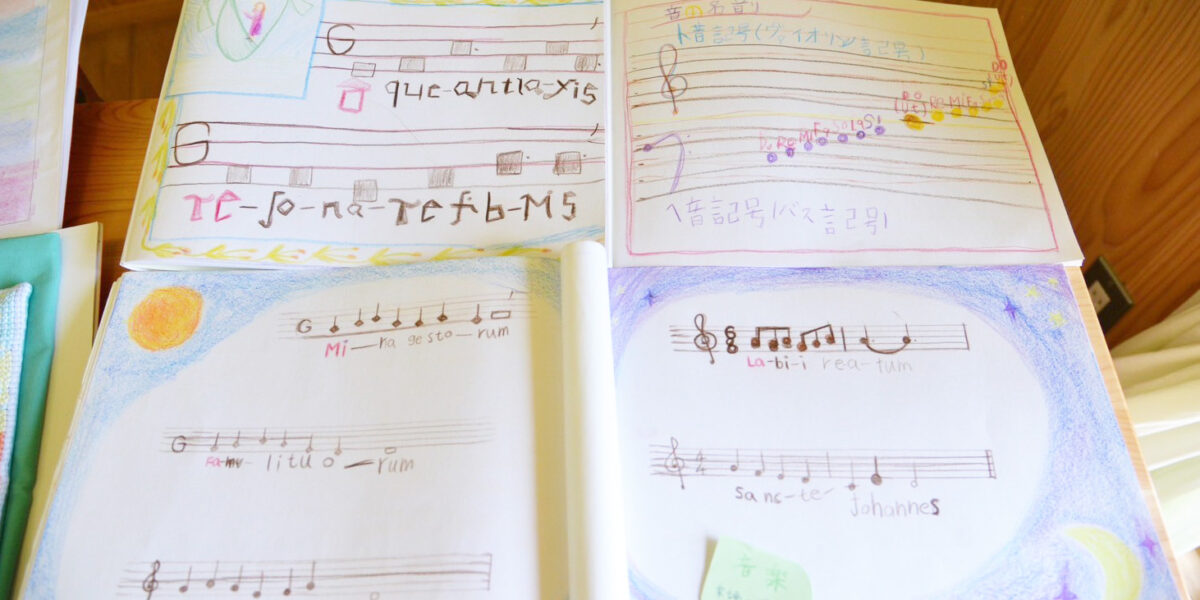 que-antla-xis
re-so-na-re fib-Mis
音の名前
ト音記号(ヴァイオリン記号)
Do Re Mi Fa So la Si
Re Mi Fa
ヘ音記号(バス記号)
Mi-ra gesto-rum
Fa-mu-lituo-rum
La-bi-i rea-tum
sanc-te-Johannes
音楽